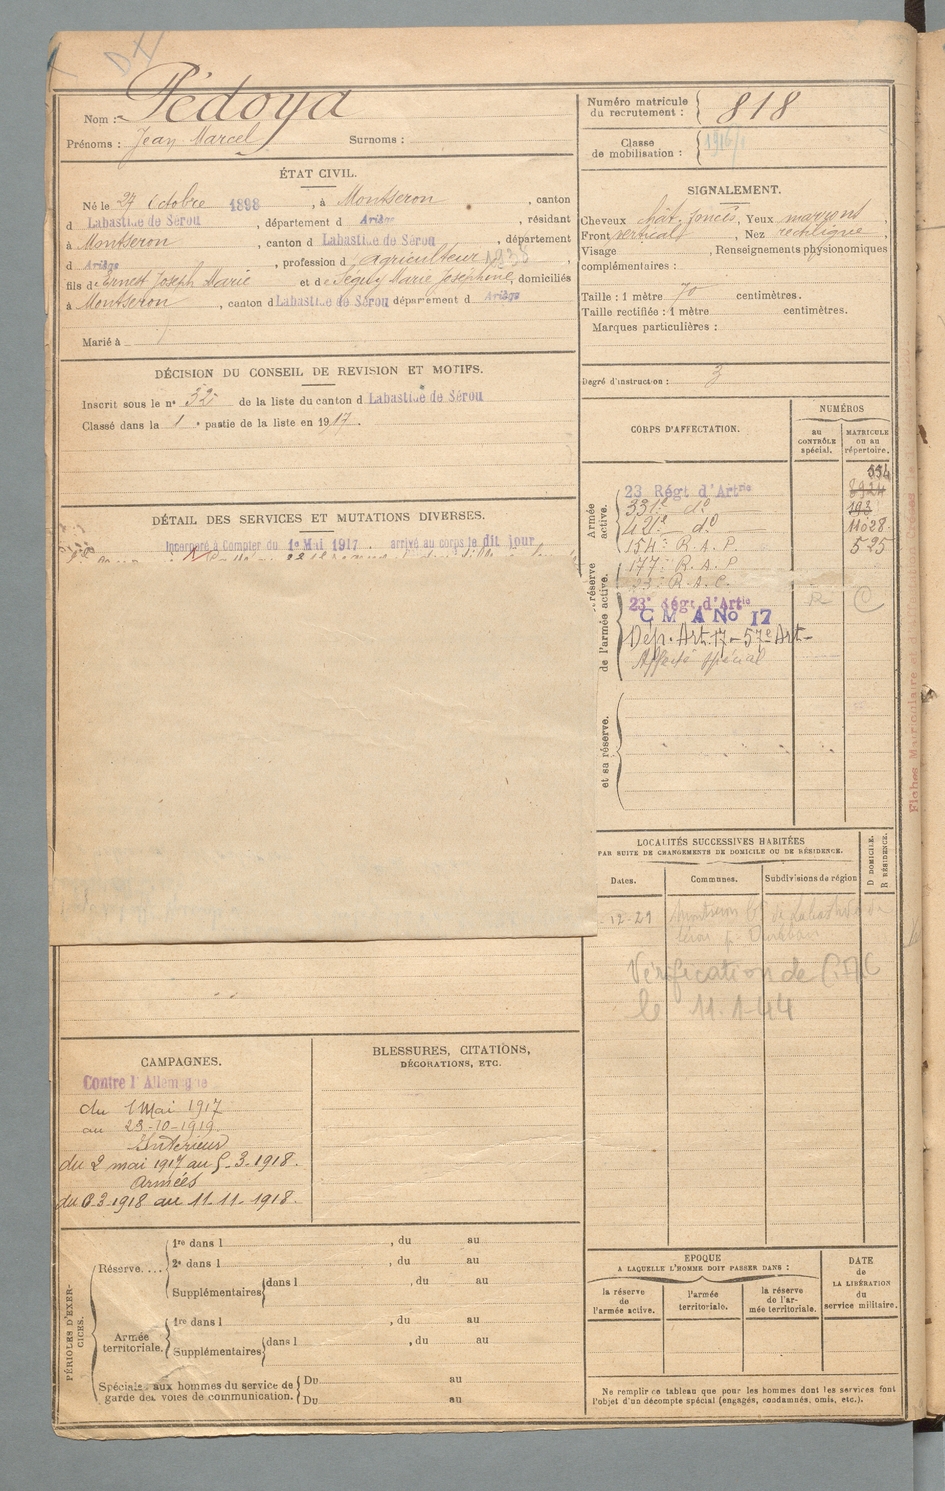 Nom : Pédoya
Prénoms : Jean Marcel Surnoms :
ÉTAT CIVIL.
Né le 27 Octobre 1898, à Montseron, canton
d Labastide de Sérou, département d Ariège, résidant
à Montseron, canton d Labastide de Sérou, département
d Ariège, profession d agriculteur
fils d Ernest Joseph Marie et de Séguy Marie Joséphine, domiciliés
à Montseron, canton d Labastide de Sérou département d Ariège
Marié à
DÉCISION DU CONSEIL DE REVISION ET MOTIFS.
Inscrit sous le n° 32 de la liste du canton d Labastide de Sérou
Classé dans la 1 e partie de la liste en 1917.
DÉTAIL DES SERVICES ET MUTATIONS DIVERSES.
Incorporé à Compter du 1er Mai 1917 arrivé au corps le dit jour
CAMPAGNES.
Contre l'Allemagne
du 1 Mai 1917
au 23-10-1919.
Intérieur
du 2 mai 1917 au 5-3-1918.
Armées
du 6-3-1918 au 11-11-1918.
BLESSURES, CITATIONS,
DÉCORATIONS, ETC.
PÉRIODES D'EXERCICES.
Réserve....
1re dans l , du au
2e dans l , du au
Supplémentaires dans l , du au
Armée territoriale.
1re dans l , du au
Supplémentaires dans l , du au
Spéciales aux hommes du service de
garde des voies de communication.
Du au
Du au
Numéro matricule
du recrutement : 818
Classe
de mobilisation :
SIGNALEMENT.
Cheveux chât. foncés, Yeux marrons,
Front vertical, Nez rectiligne,
Visage , Renseignements physionomiques
complémentaires :
Taille : 1 mètre 70 centimètres.
Taille rectifiée : 1 mètre centimètres.
Marques particulières :
Degré d'instruction : 3
CORPS D'AFFECTATION.
NUMÉROS
au
CONTRÔLE
spécial.
MATRICULE
ou au
répertoire.
Armée
active.
23 Régt d'Artrie
331e do
421e do
154e R.A.P.
177e R.A.P
23e R.A.C.
23e Régt d'Artie
C M A No 17
Dép. Art. 17 - 57e Art -
Affecté spécial
554
8924
193
11028
525
R C
réserve
de l'armée active.
et sa réserve.
LOCALITÉS SUCCESSIVES HABITÉES
PAR SUITE DE CHANGEMENTS DE DOMICILE OU DE RÉSIDENCE.
Dates.
Communes.
Subdivisions de région
D DOMICILE.
R RÉSIDENCE.
-12-29
Vérification de
le 11.1.44
EPOQUE
A LAQUELLE L'HOMME DOIT PASSER DANS :
la réserve
de
l'armée active.
l'armée
territoriale.
la réserve
de l'ar-
mée territoriale.
DATE
de
LA LIBÉRATION
du
service militaire.
Ne remplir ce tableau que pour les hommes dont les services font
l'objet d'un décompte spécial (engagés, condamnés, omis, etc.).